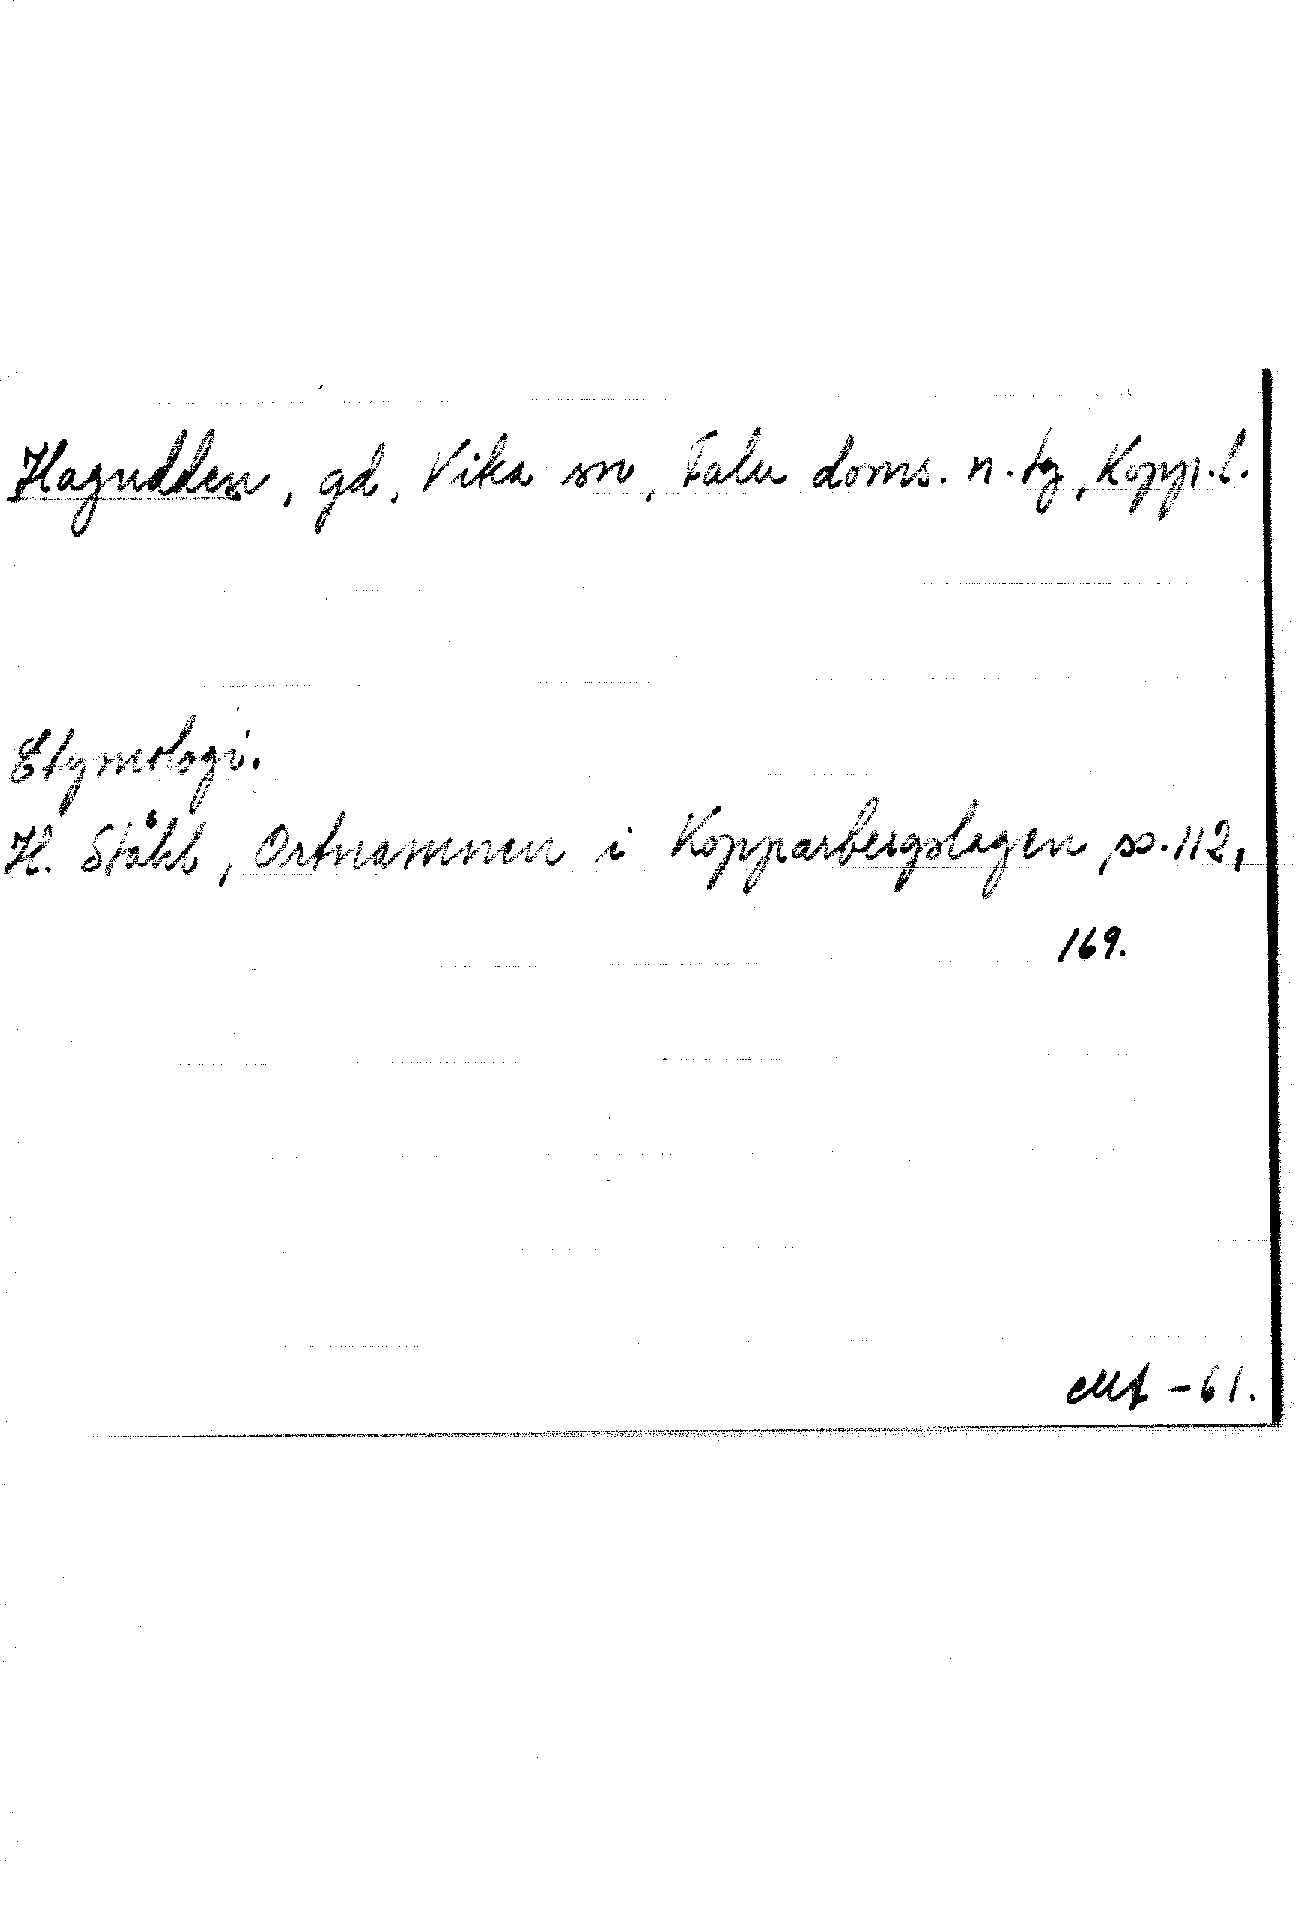 Hagudden, gd, Vika sn, Falu doms. n. tg, Kopp. l.
Etymologi.
H. Ståhl, Ortnamnen i Kopparbergslagen ss. 112,
169.
-61.